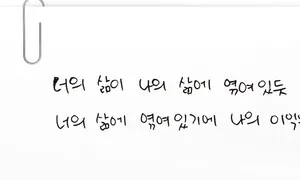 너의 삶이 나의 삶에 엮여있듯
너의 삶에 엮여있기에 나의